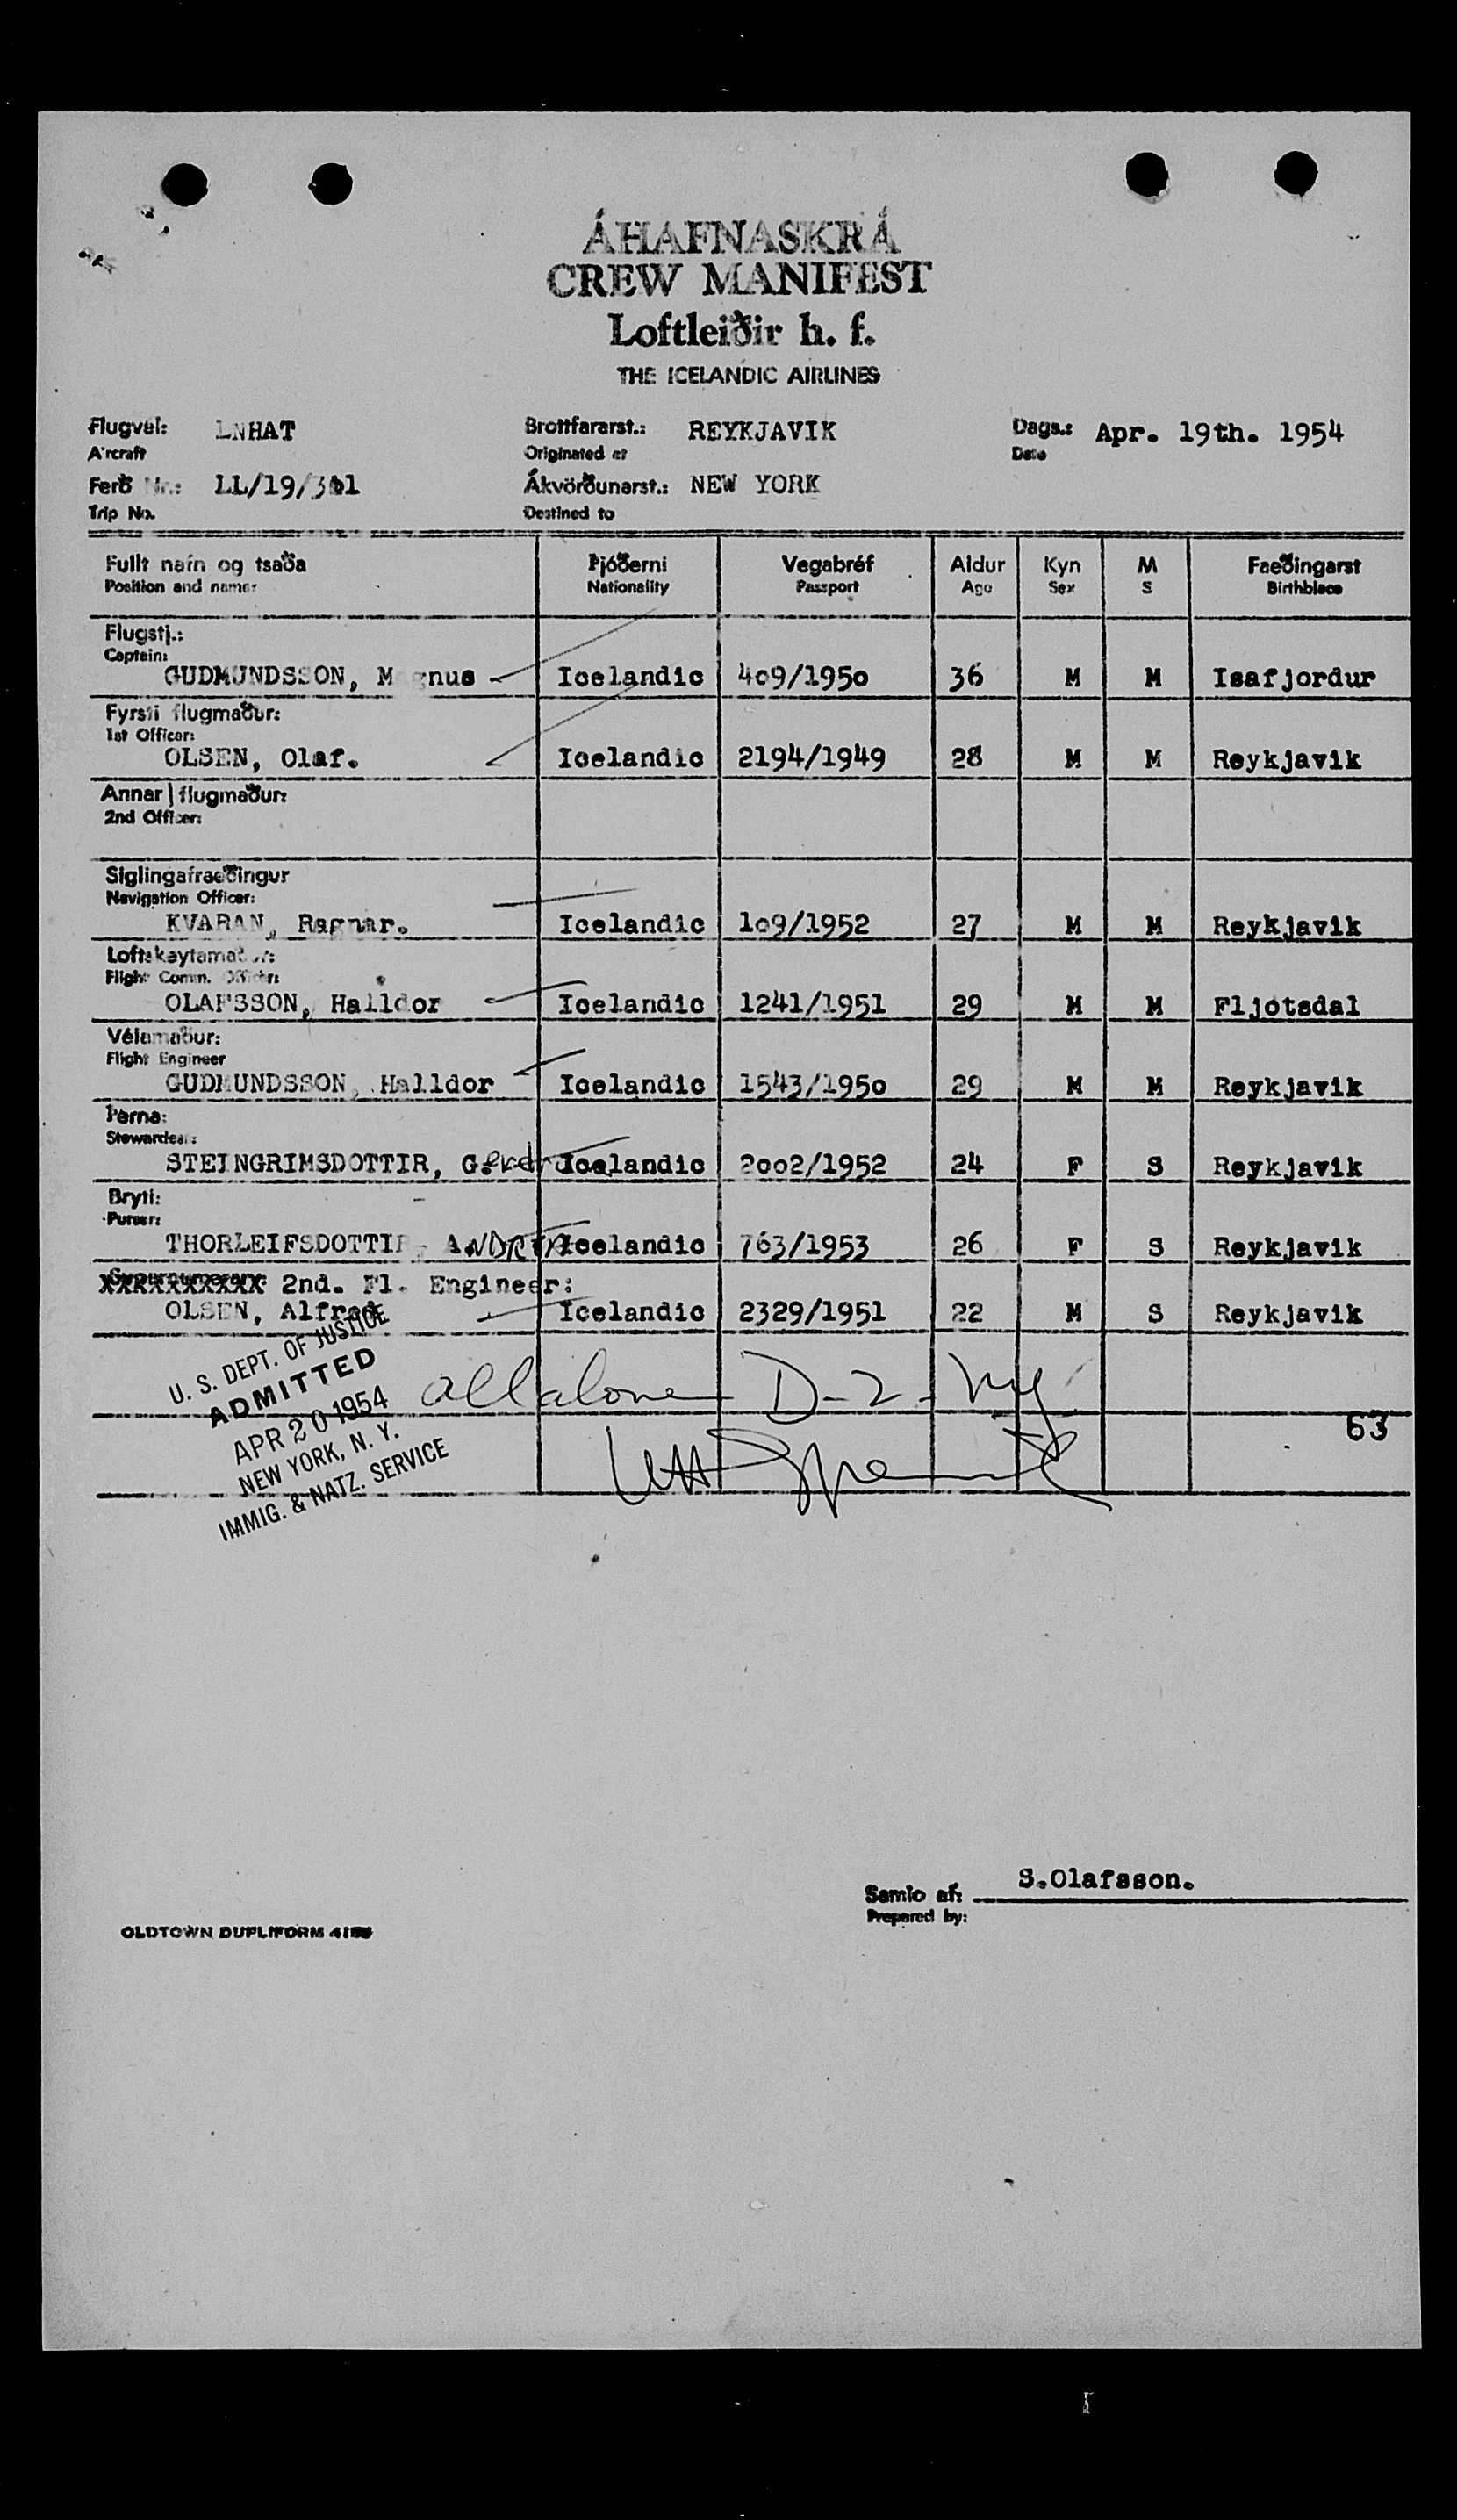 ÁHAFNASKRÁ
CREW MANIFEST
Loftleiðir h. f.
THE ICELANDIC AIRLINES
Flugvél: LNHAT Brottfararst.: REYKJAVIK Dags.: Apr. 19th. 1954
Aircraft Originated at Date
Ferð Nr.: LL/19/ Ákvörðunarst.: NEW YORK
Trip No. Destined to
Fullt nafn og tsaða Þjóðerni Vegabréf Aldur Kyn M Faeðingarst
Position and name: Nationality Passport Age Sex S Birthblace
Flugstj.:
Captain:
GUDMUNDSSON, Magnus Icelandic 4o9/195o 36 M M Isafjordur
Fyrsti flugmaður:
1st Officer:
OLSEN, Olaf. Icelandic 2194/1949 28 M M Reykjavik
Annar flugmaður:
2nd Officer:
Siglingafraeðingur
Navigation Officer:
KVARAN, Ragnar. Icelandic 1o9/1952 27 M M Reykjavik
Loftskeytamaður:
Flight Comm. Officer:
OLAFSSON, Halldor Icelandic 1241/1951 29 M M Fljotsdal
Vélamaður:
Flight Engineer
GUDMUNDSSON, Halldor Icelandic 1543/195o 29 M M Reykjavik
Þerna:
Stewardess:
STEINGRIMSDOTTIR, Icelandic 2oo2/1952 24 F S Reykjavik
Bryti:
Purser:
THORLEIFSDOTTIR, ANDREA Icelandic 763/1953 26 F S Reykjavik
Supernumerary: 2nd. Fl. Engineer:
OLSEN, Alfred Icelandic 2329/1951 22 M S Reykjavik
U. S. DEPT. OF JUSTICE
ADMITTED
APR 20 1954
NEW YORK, N. Y.
IMMIG. & NATZ. SERVICE
all alone D-2- NY
63
Samið af: S.Olafsson.
Prepared by:
OLDTOWN DUPLIFORM